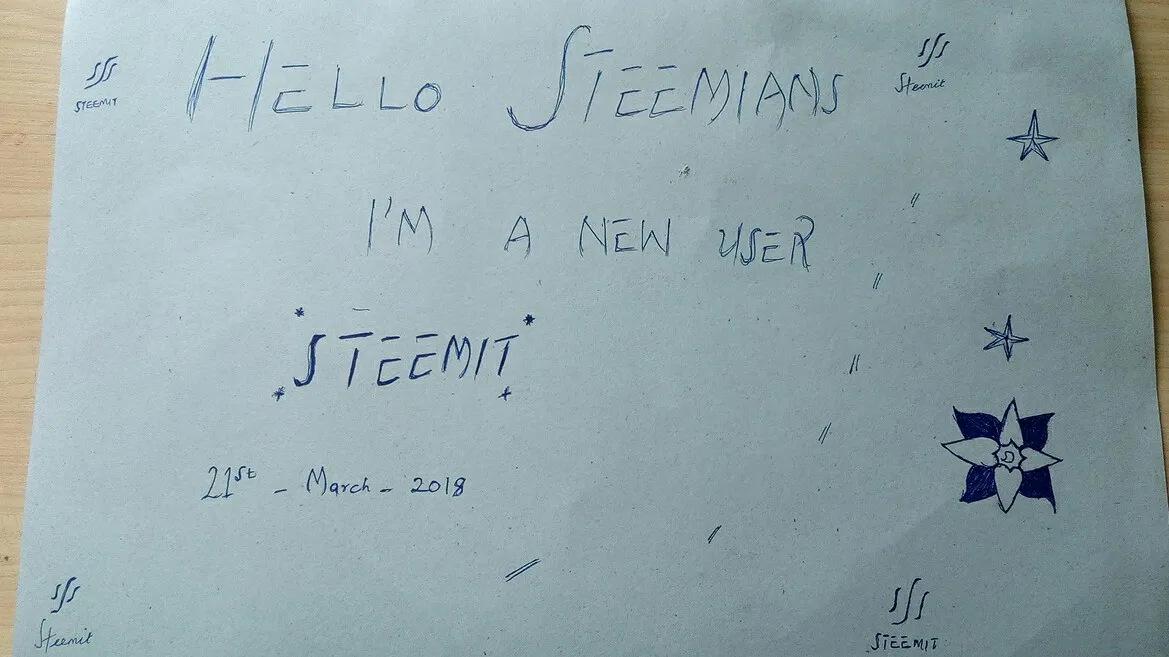 STEEMIT
HELLO STEEMIANS
Steemit
I'M A NEW USER
STEEMIT
21st - March - 2018
Steemit
STEEMIT